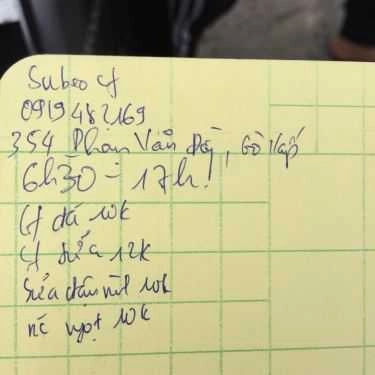 Subeo cf
0919482169
354 Phạm Văn Đồng, Gò Vấp
6h30 - 17h!
Cf đá 10k
Cf sữa 12k
Sữa đậu nành 10k
nc ngọt 10k